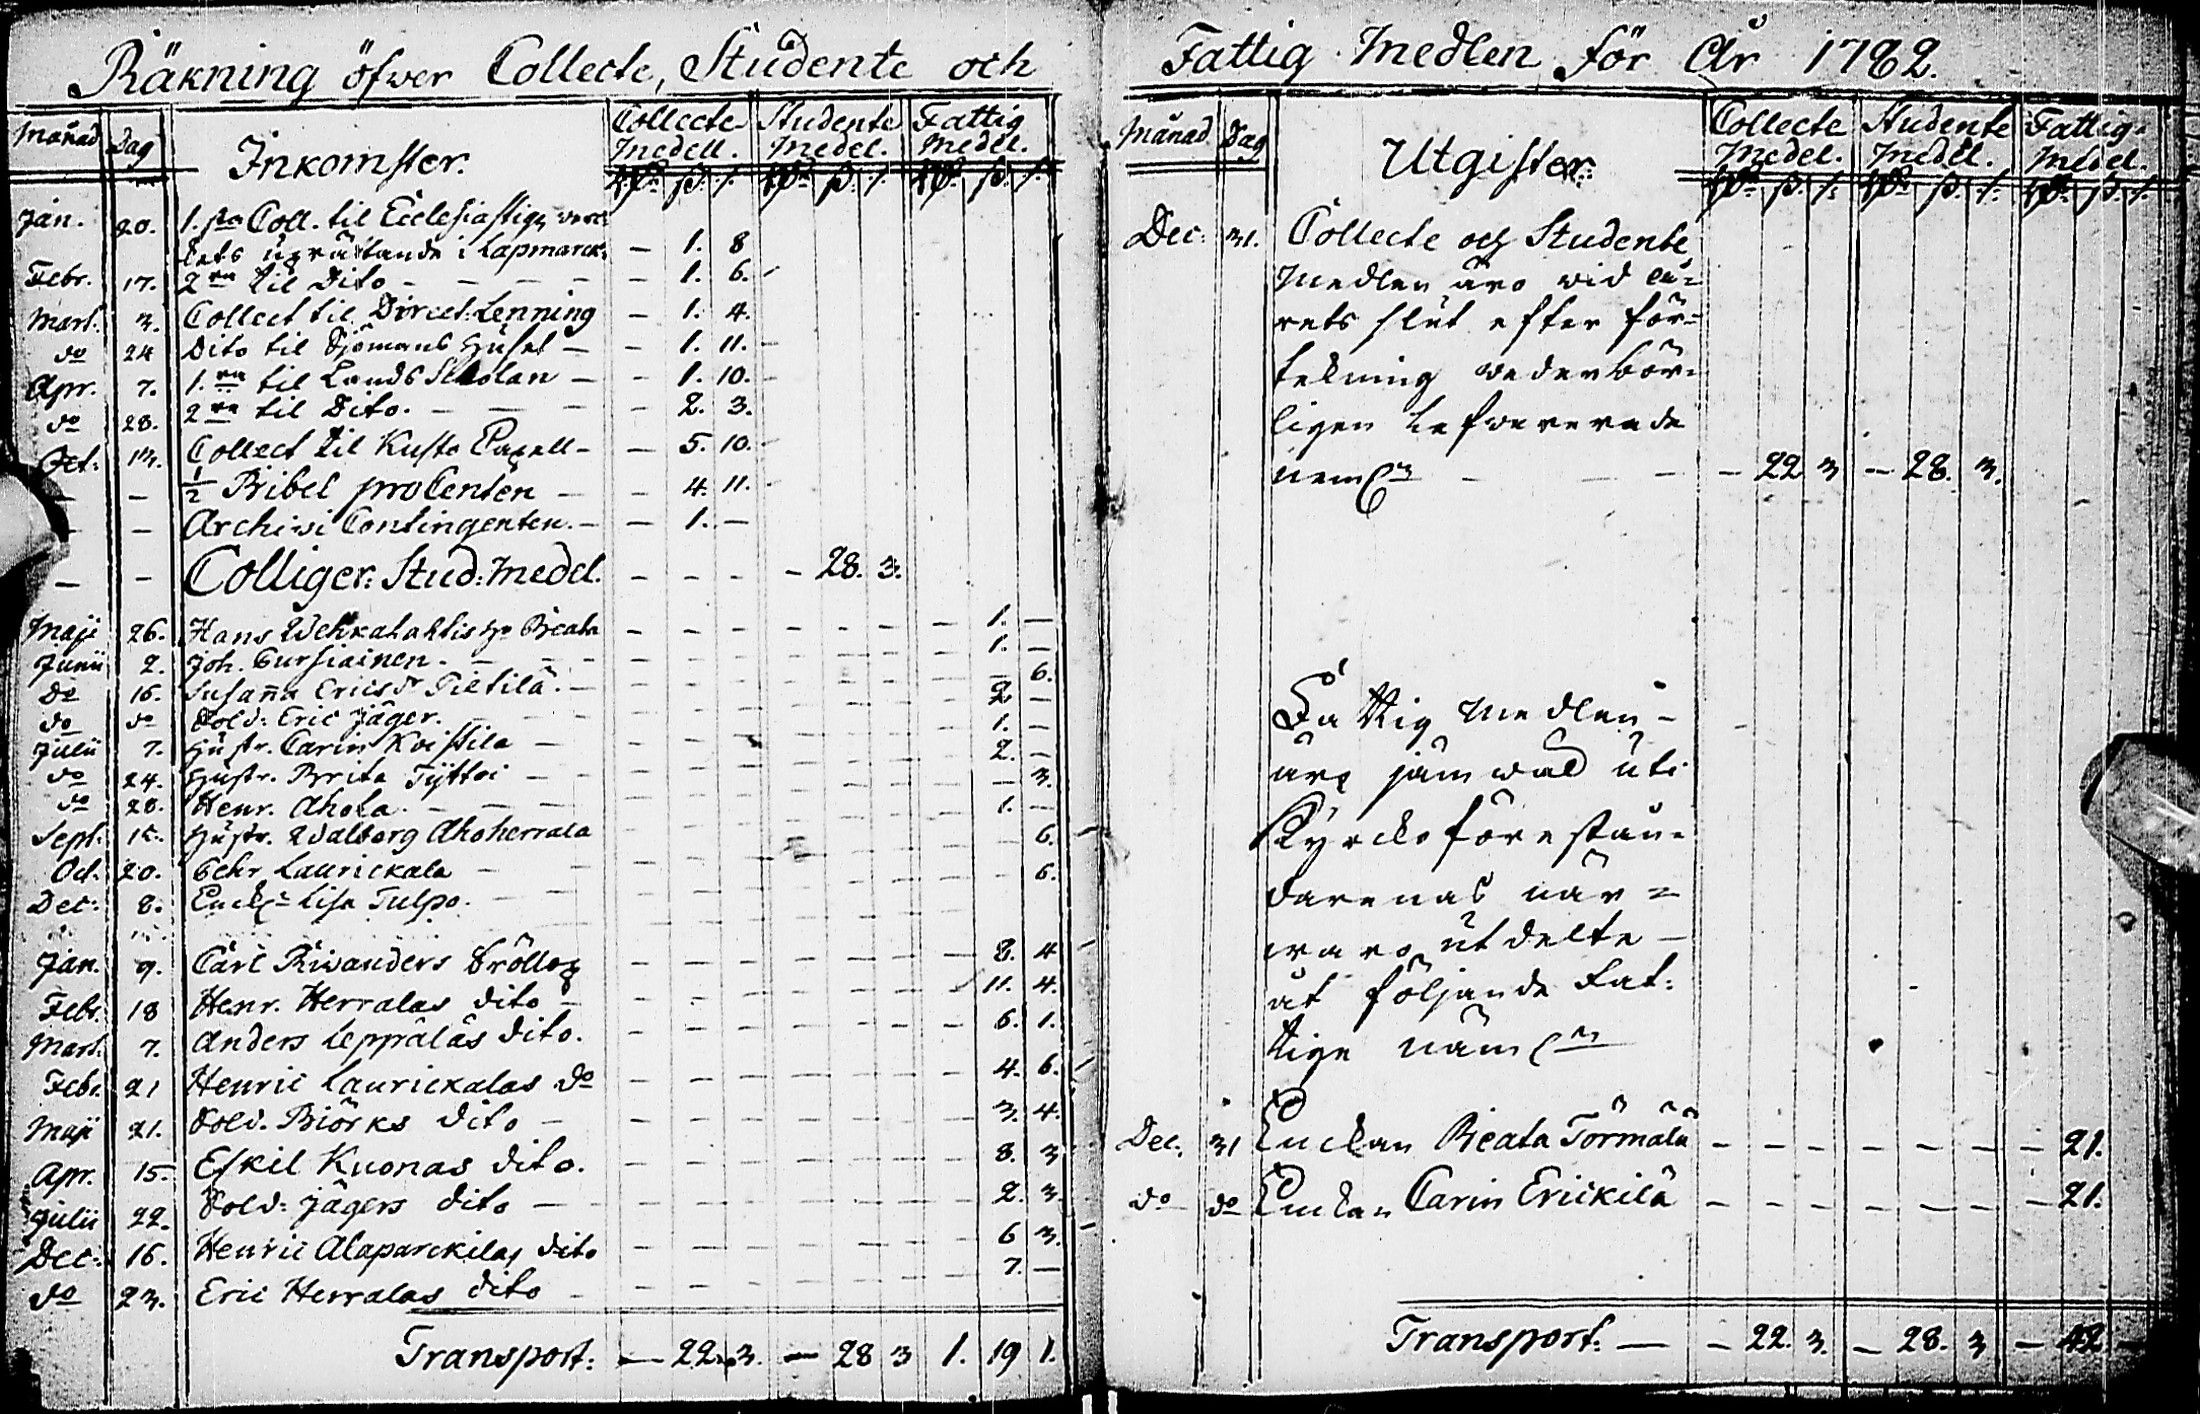 Räkning öfver Collecte, Studente och
Månad Dag Inkomster. Collecte Medell. Studente Medel. Fattig Medel.
Jan. 20. 1.sta Coll. til Ecclesiastiqv verc
kets uprättande i Lapmarck: — 1. 8
Febr. 17. 2ra til Dito — — 1. 6.
Mart. 3. Collect til Direct. Lenning — 1. 4.
do 24 Dito til Sjömans Huset — — 1. 11.
Apr. 7. 1.ra til Lands Scholan — — 1. 10.
do 28. 2ra til Dito. — — 2. 3.
Oct: 13. Collect til Kusto Capell — — 5. 10.
— — 1/2 Bibel pro Centen — — 4. 11.
— — Archivi Contingenten. — — 1. —
— — Colliger: Stud: Medel. — — — — 28. 3.
Maji 26. Hans Wehkalahtis hr Beata 1. —
Junii 2. Joh. Cursiainen. 1. —
Do 16. Susanna Ericsdr Pietilä. — 6.
do do Sold: Eric Jäger. 2. —
Julii 7. Hustr. Carin Koistila 1. —
do 24. Hustr. Brita Tyttoi 2. —
do 28. Henr. Ahola. — 3.
Sept: 15. Hustr. Walborg Ahoherrala 1. —
Oct. 20. Laurickala 6.
Dec: 8. Enck. Lisa Tulpo. 6.
Jan. 9. Carl Riwanders Bröllop 8. 4
Febr. 18 Henr. Herralas dito 11. 4.
Mart. 7. Anders Leppäläs dito. 6. 1.
Febr. 21 Henric Laurickalas do 4. 6.
Maji 21. Sold. Biörks dito 3. 4.
Apr. 15. Eskil Kuonas dito. 8. 3
Julii 22. Sold: Jägers dito 2. 3.
Dec: 16. Henric Alaparckilas dito 6 3.
do 23. Eric Herralas dito 7. —
Transport: — 22. 3. — 28 3 1. 19 1.
Fattig Medlen för År 1782.
Månad Dag Utgifter. Collecte Medel. Studente Medel. Fattig Medel.
Dec: 31. Collecte och Studente
Medlen äro vid å=
rets slut efter för=
tekning vederbör=
ligen lefwererade
neml — 22 3 — 28. 3.
Fattig Medlen
äro jämwäl uti
Kyrcko förestån=
darenas när=
waro utdelte
åt följande Fat=
tige näml
Dec. 31 Enckan Beata Törmälä — 21.
do do Enckan Carin Erickilä — 21.
Transport: — — 22. 3. — 28. 3 — 42 —